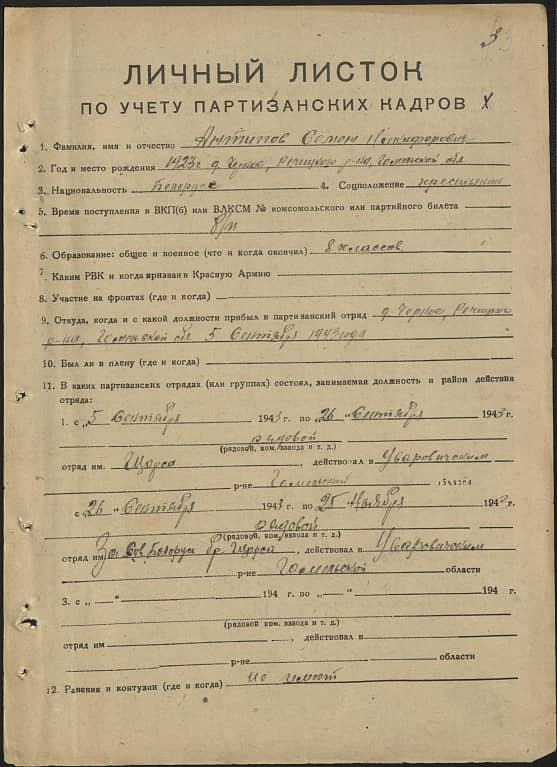 3
ЛИЧНЫЙ ЛИСТОК
ПО УЧЕТУ ПАРТИЗАНСКИХ КАДРОВ
1. Фамилия, имя и отчество Антипов Семен Никифорович
2. Год и место рождения 1923г д. Речицкого р-на, Гомельской обл
3. Национальность Белорус 4. Соцположение крестьянин
5. Время поступления в ВКП(б) или ВЛКСМ № комсомольского или партийного билета
б/п
6. Образование: общее и военное (что и когда окончил) 8 классов
7. Каким РВК и когда призван в Красную Армию
8. Участие на фронтах (где и когда)
9. Откуда, когда и с какой должности прибыл в партизанский отряд д. Речицкого
р-на, Гомельской обл 5 Сентября 1943 года
10. Был ли в плену (где и когда)
11. В каких партизанских отрядах (или группах) состоял, занимаемая должность и район действия
отряда:
1. с „5 Сентября 1943 г. по „26 “ Сентября 1943 г.
рядовой
(рядовой, ком. взвода и т. д.)
отряд им. Щорса, действовал в Уваровичском
р-не Гомельской области
с „26 “ Сентября 1943 г. по „25 Ноября 1943 г.
рядовой
(рядовой, ком. взвода и т. д.)
отряд им За Сов. Белорус бр. Щорса действовал в Уваровичским
р-не Гомельской области
3. с „ — “ 194 г. по „ — “ 194 г.
(рядовой ком. взвода и т. д.)
отряд им , действовал в
р-не области
12. Ранения и контузии (где и когда) не имеет